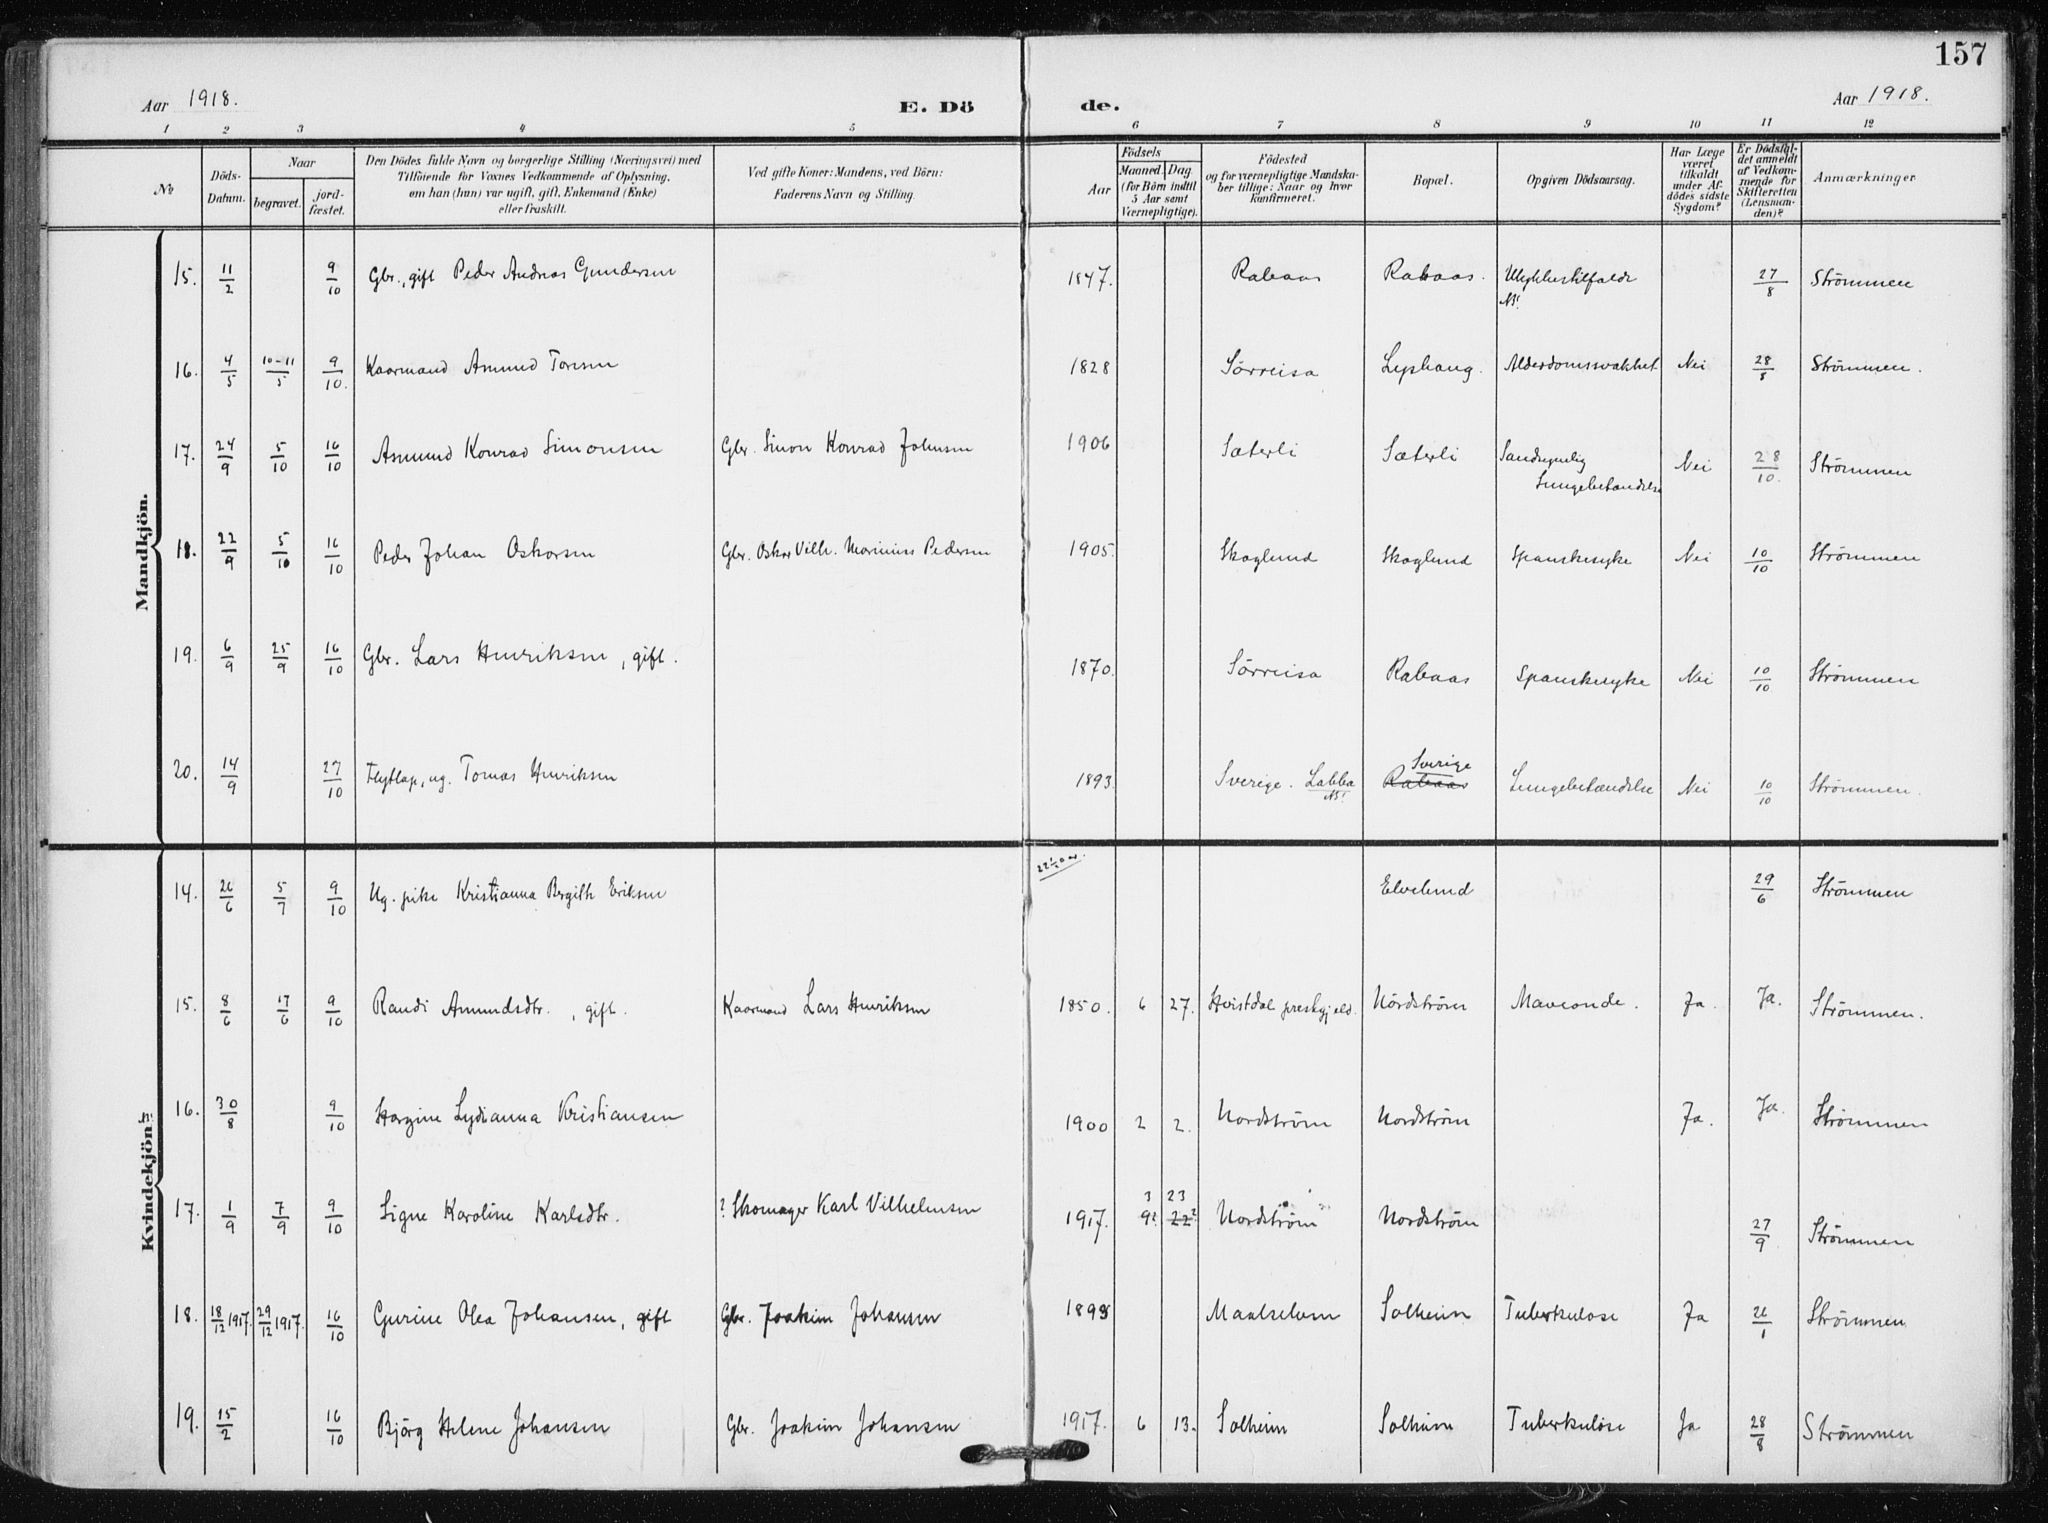 157
Aar 1918. E. Dö de. Aar 1918.
1 2 3 4 5 6 7 8 9 10 11 12
№ Döds-Datum. Naar begravet. jord-fæstet. Den Dödes fulde Navn og borgerlige Stilling (Næringsvei) med Tilföiende for Voxnes Vedkommende af Oplysning, om han (hun) var ugift, gift, Enkemand (Enke) eller fraskilt. Ved gifte Koner: Mandens, ved Börn: Faderens Navn og Stilling. Aar Födsels Maaned Dag (for Börn indtil 5 Aar samt Værnepligtige). Födested og for værnepligtige Mandskaber tillige: Naar og hvor konfirmeret. Bopæl. Opgiven Dödsaarsag. Har Læge været tilkaldt under Afdödes sidste Sygdom? Er Dödsfaldet anmeldt af Vedkommende for Skifteretten (Lensmanden)? Anmærkninger
Mandkjön.
15. 11/2 9/10 Gbr., gift Peder Andreas Gundersen 1847. Rabaas Rabaas. Ulykkestilfælde NB! 27/8 Strømmen
16. 4/5 10-11/5 9/10. Kaarmand Amund Toresen 1828 Sørreisa Lyshaug. Alderdomssvakhet Nei 28/8 Strømmen.
17. 24/9 5/10 16/10 Asmund Konrad Simonsen Gbr. Simon Konrad Johnsen 1906 Sæterli Sæterli Sandsynelig Lungebetændelse Nei 28/10. Strømmen
18. 22/9 5/10 16/10 Peder Johan Oskarsen Gbr. Oskar Vilh. Marinius Pedersen 1905. Skoglund Skoglund Spanskesyke Nei 10/10 Strømmen
19. 6/9 25/9 16/10 Gbr. Lars Henriksen, gift. 1870. Sørreisa Rabaas Spanskesyke Nei 10/10 Strømmen
20. 14/9 27/10 Flytlap, ug. Tomas Henriksen 1893 Sverige. Labba NB! Sverige Rabaas Lungebetændelse Nei 10/10 Strømmen.
Kvindekjön.
14. 26/6 5/7 9/10 Ug. pike Kristianna Bergith Eriksen 22 1/2 år. Elvelund 29/6 Strømmen
15. 8/6 17/6 9/10 Randi Amundsdtr., gift. Kaarmand Lars Henriksen 1850. 6 27. Hvistdal preskgjeld. Nordstrøm Maveonde. Ja. Ja. Strømmen.
16. 30/8 9/10 Lydianna Kristiansen 1900 2 2. Nordstrøm Nordstrøm Ja. Ja. Strømmen
17. 1/9 7/9 9/10 Signe Karoline Karlsdtr. ? Skomager Karl Vilhelmsen 1917. 3 9? 23 22? Nordstrøm Nordstrøm 27/9 Strømmen
18. 18/12 1917. 29/12 1917. 16/10 Gurine Olea Johansen, gift Gbr. Joakim Johansen Maalselven Solheim Tuberkulose Ja 26/1 Strømmen
19. 15/2 16/10 Bjørg Helene Johansen Gbr. Joakim Johansen 1917. 6 13. Solheim Solheim Tuberkulose Ja 28/8 Strømmen